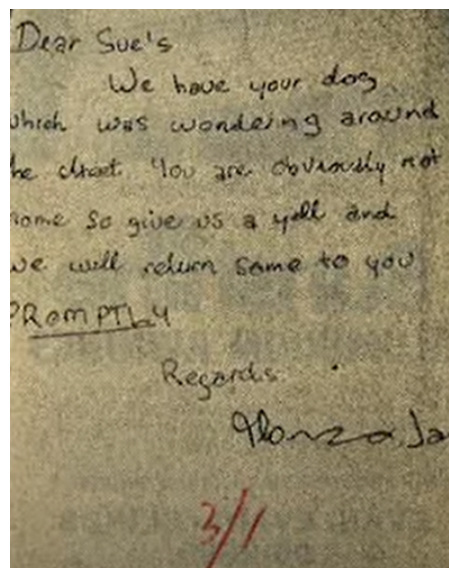 Dear Sue's
We have your dog
which was wondering around
he street. You are obviously not
ome so give us a yell and
we will return same to you
PROMPTLY
Regards.
3/1